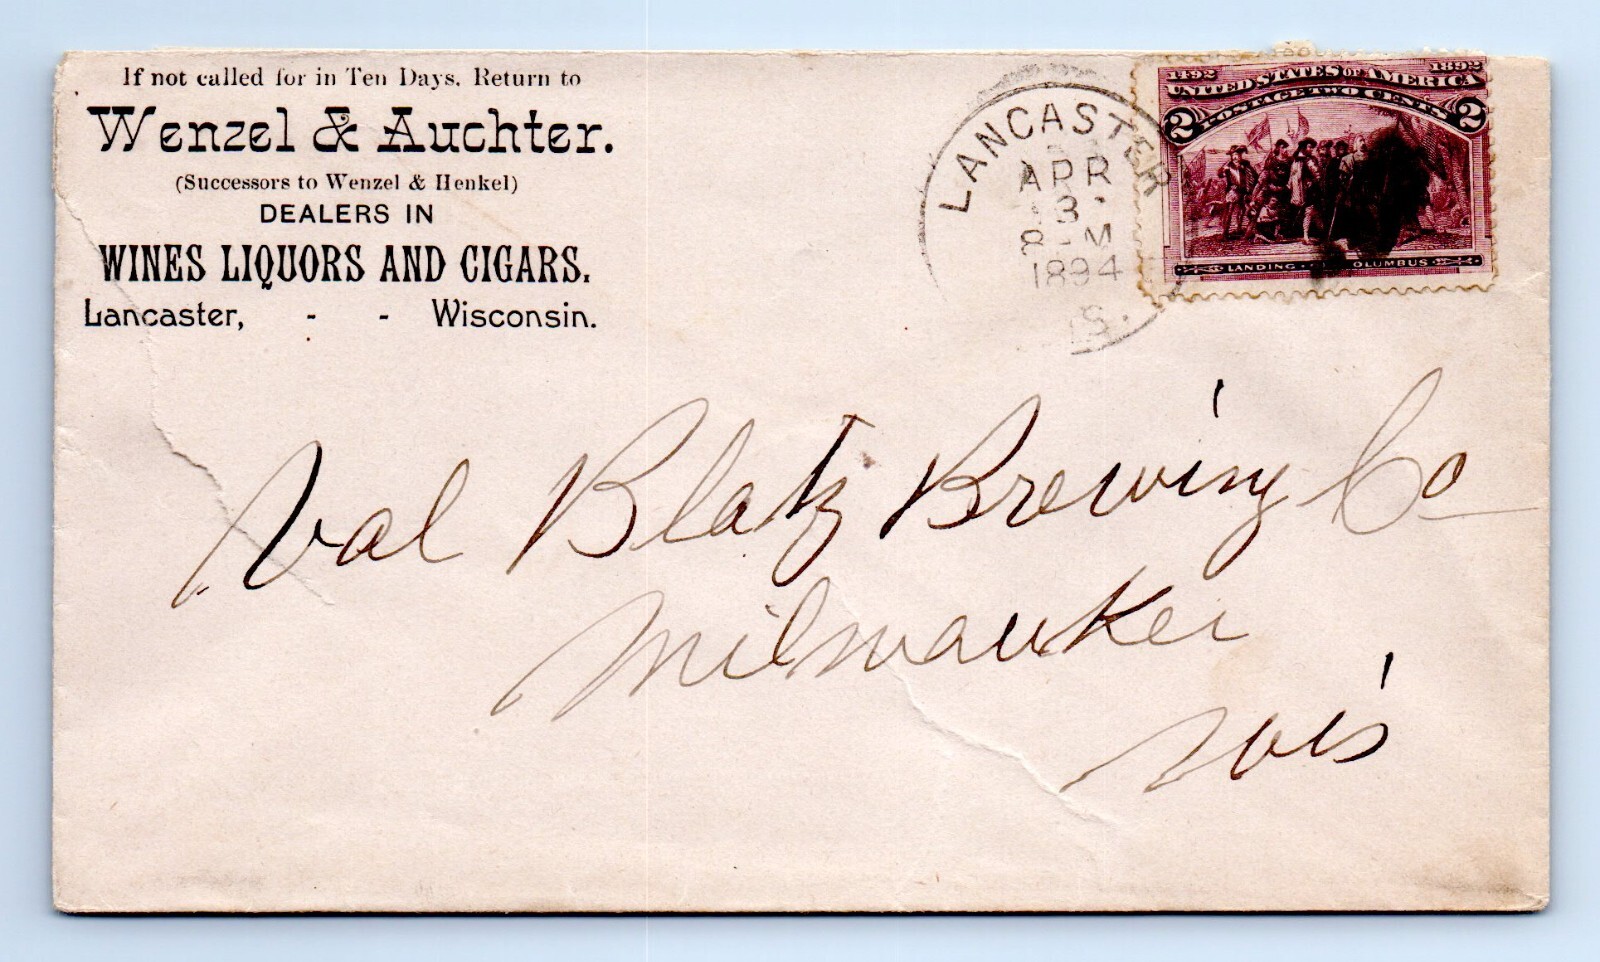 If not called for in Ten Days, Return to
Wenzel & Auchter.
(Successors to Wenzel & Henkel)
DEALERS IN
WINES LIQUORS AND CIGARS.
Lancaster, - - Wisconsin.
LANCASTER
APR
1894
IS.
1492 1892
UNITED STATES OF AMERICA
2 POSTAGE TWO CENTS 2
LANDING OLUMBUS
Val Blatz Brewing Co
Milwaukei
Wis